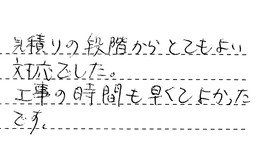 見積りの段階からとてもよい
対応でした。
工事の時間も早くてよかった
です。